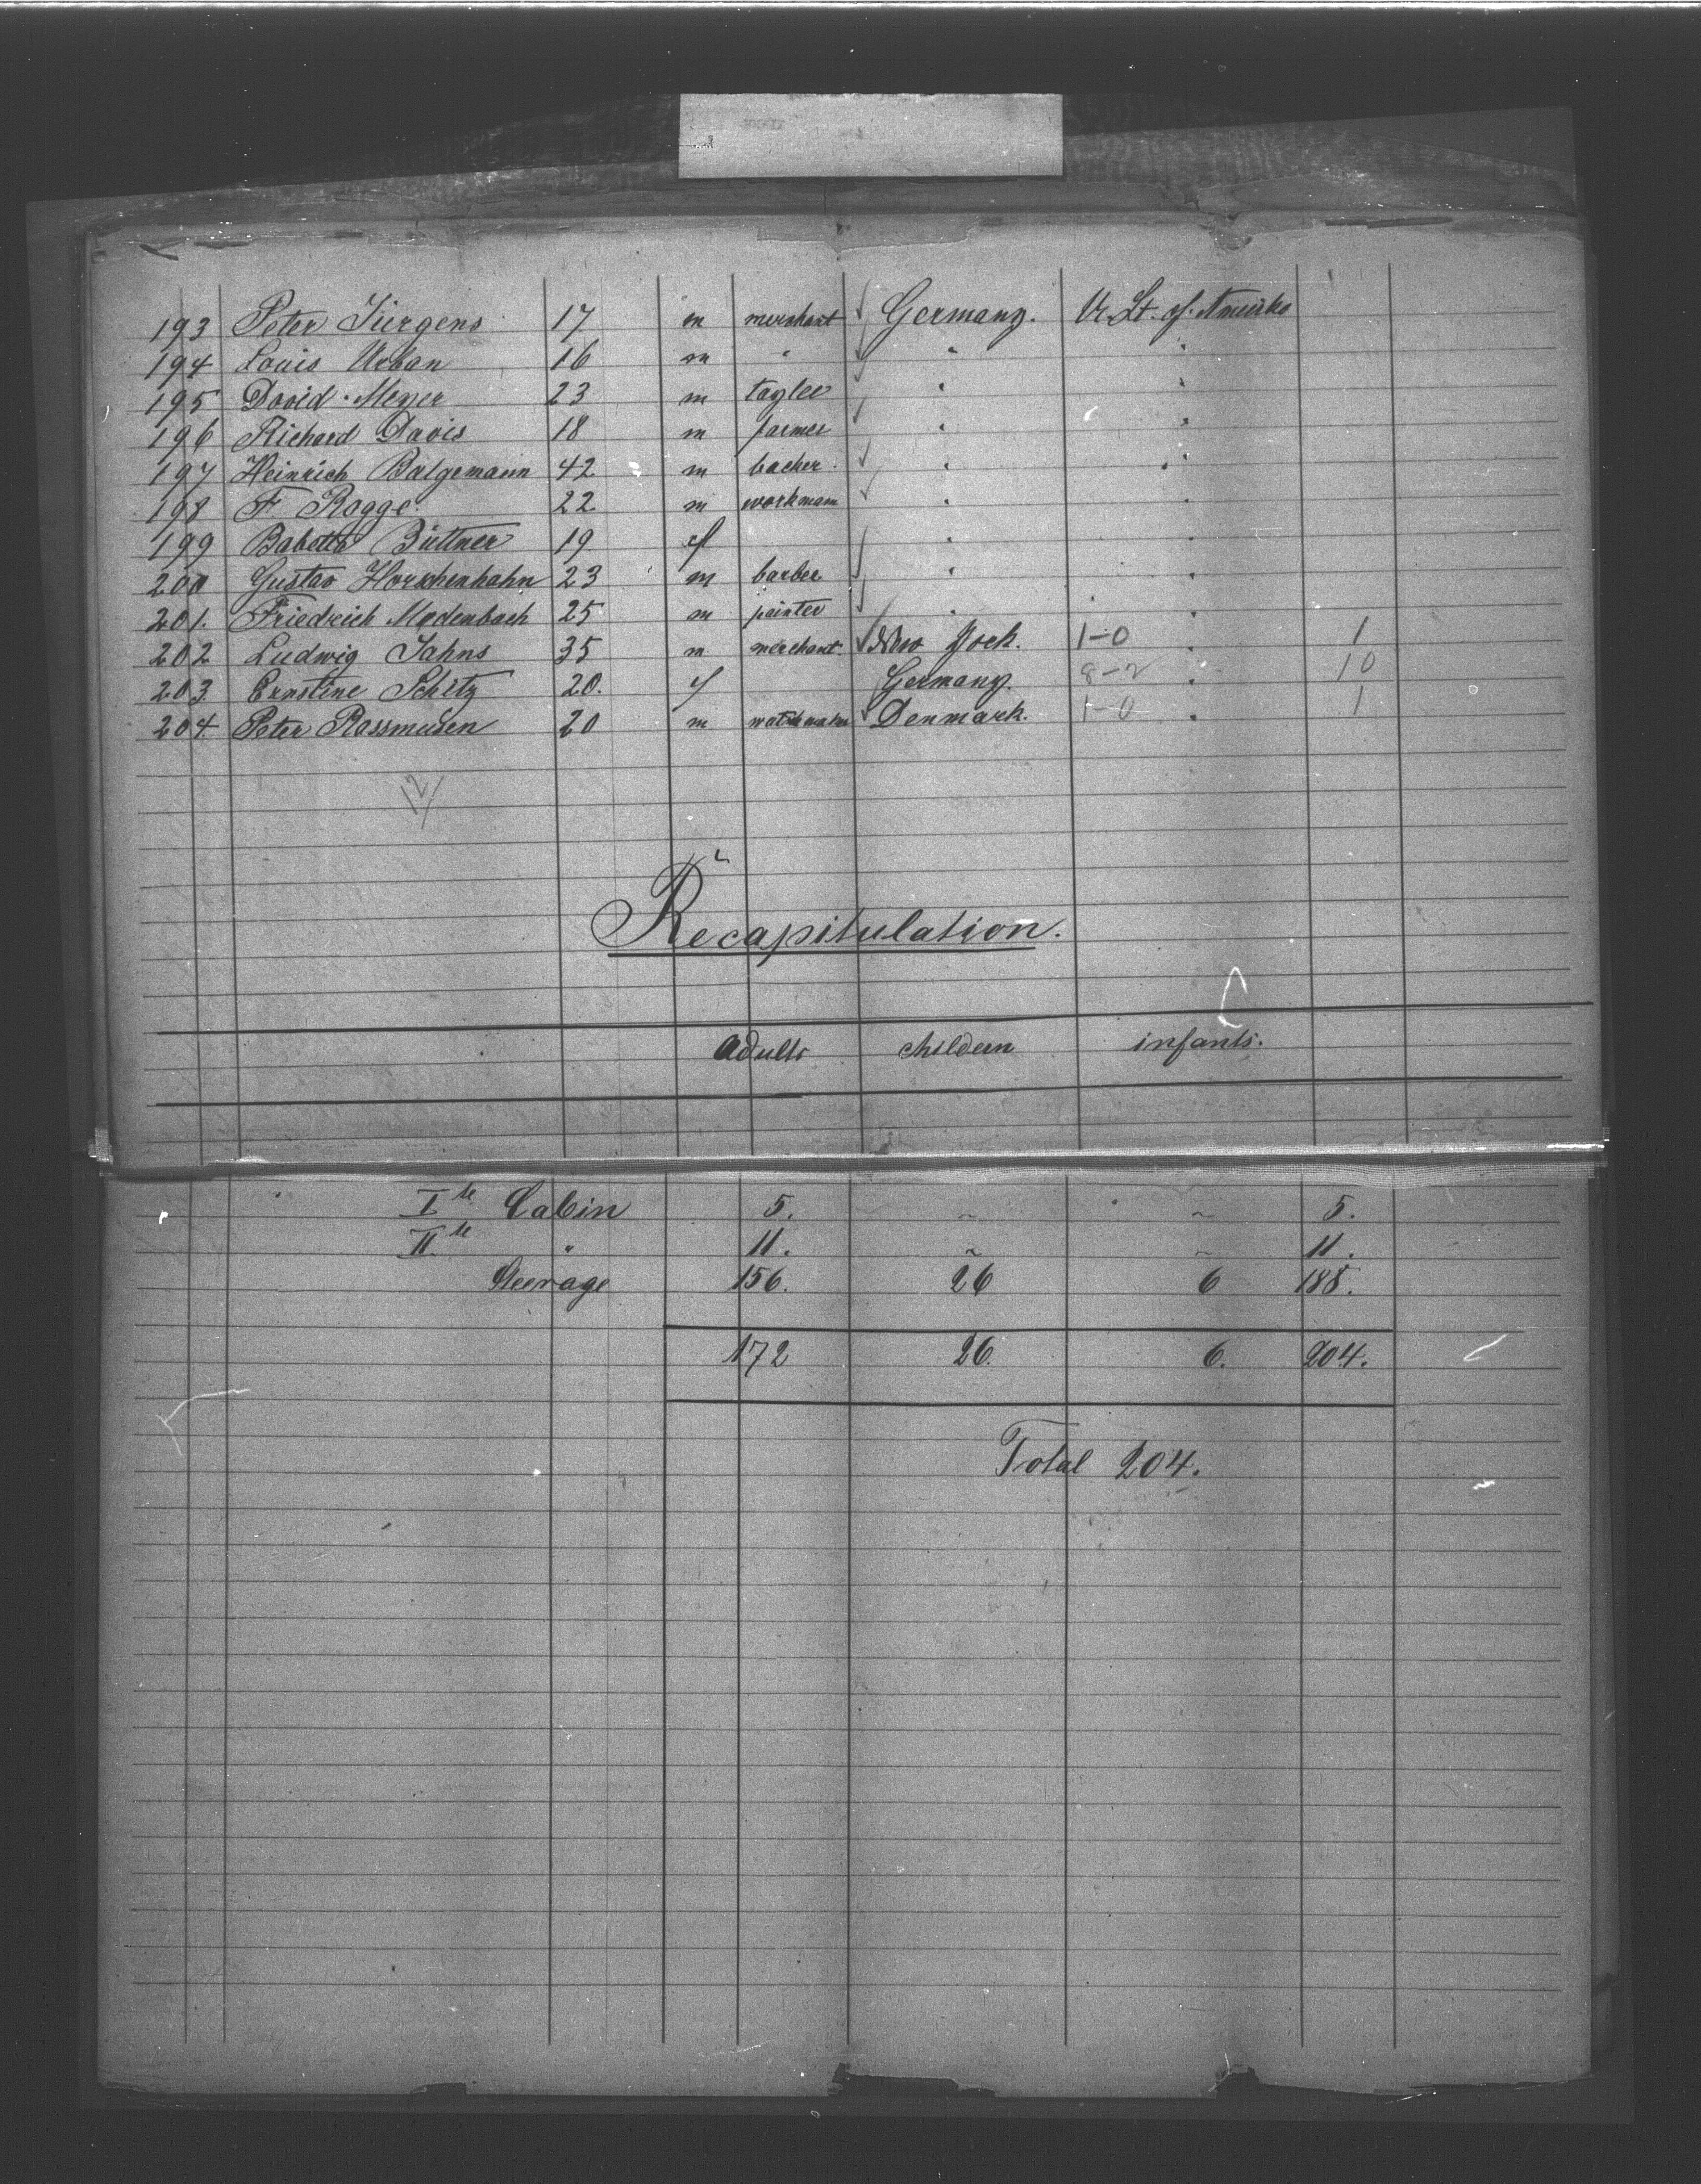 193 Peter Jürgens 17 m merchant Germany. U. St. of. Amerika
194 Louis Urban 16 m " " "
195 David Meyer 23 m taylee " "
196 Richard Davis 18 m farmer " "
197 Heinrich Balgemann 42 m backer. " "
198 F Rogge. 22 m workmann " "
199 Babette Büttner 19 f " "
200 Gustav Horschenhahn 23 m barber " "
201. Friedrich Modenbach 25 m painter " "
202 Ludwig Jahns 35 m merchant. New York. 1-0 " 1
203. Ernstine Schitz 20. f Germany. 8-2 " 10
204. Peter Rassmusen 20 m watchmaker Denmark. 1-0 " 1
12/
Recapitulation.
adults childern infants.
Ite Cabin 5. ~ ~ 5.
IIte " 11. ~ ~ 11.
Steerage 156. 26 6 188.
172 26. 6. 204.
Total 204.